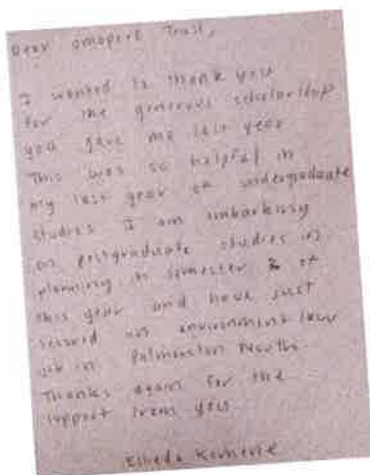 Dear Omapere Trust,
I wanted to thank you
for the generous scholarship
you gave me last year
This was so helpful in
my last year of undergraduate
studies I am embarking
on postgraduate studies in
planning in semester 2 of
this year and have just
secured an environment law
job in Palmerston North.
Thanks again for the
support from you